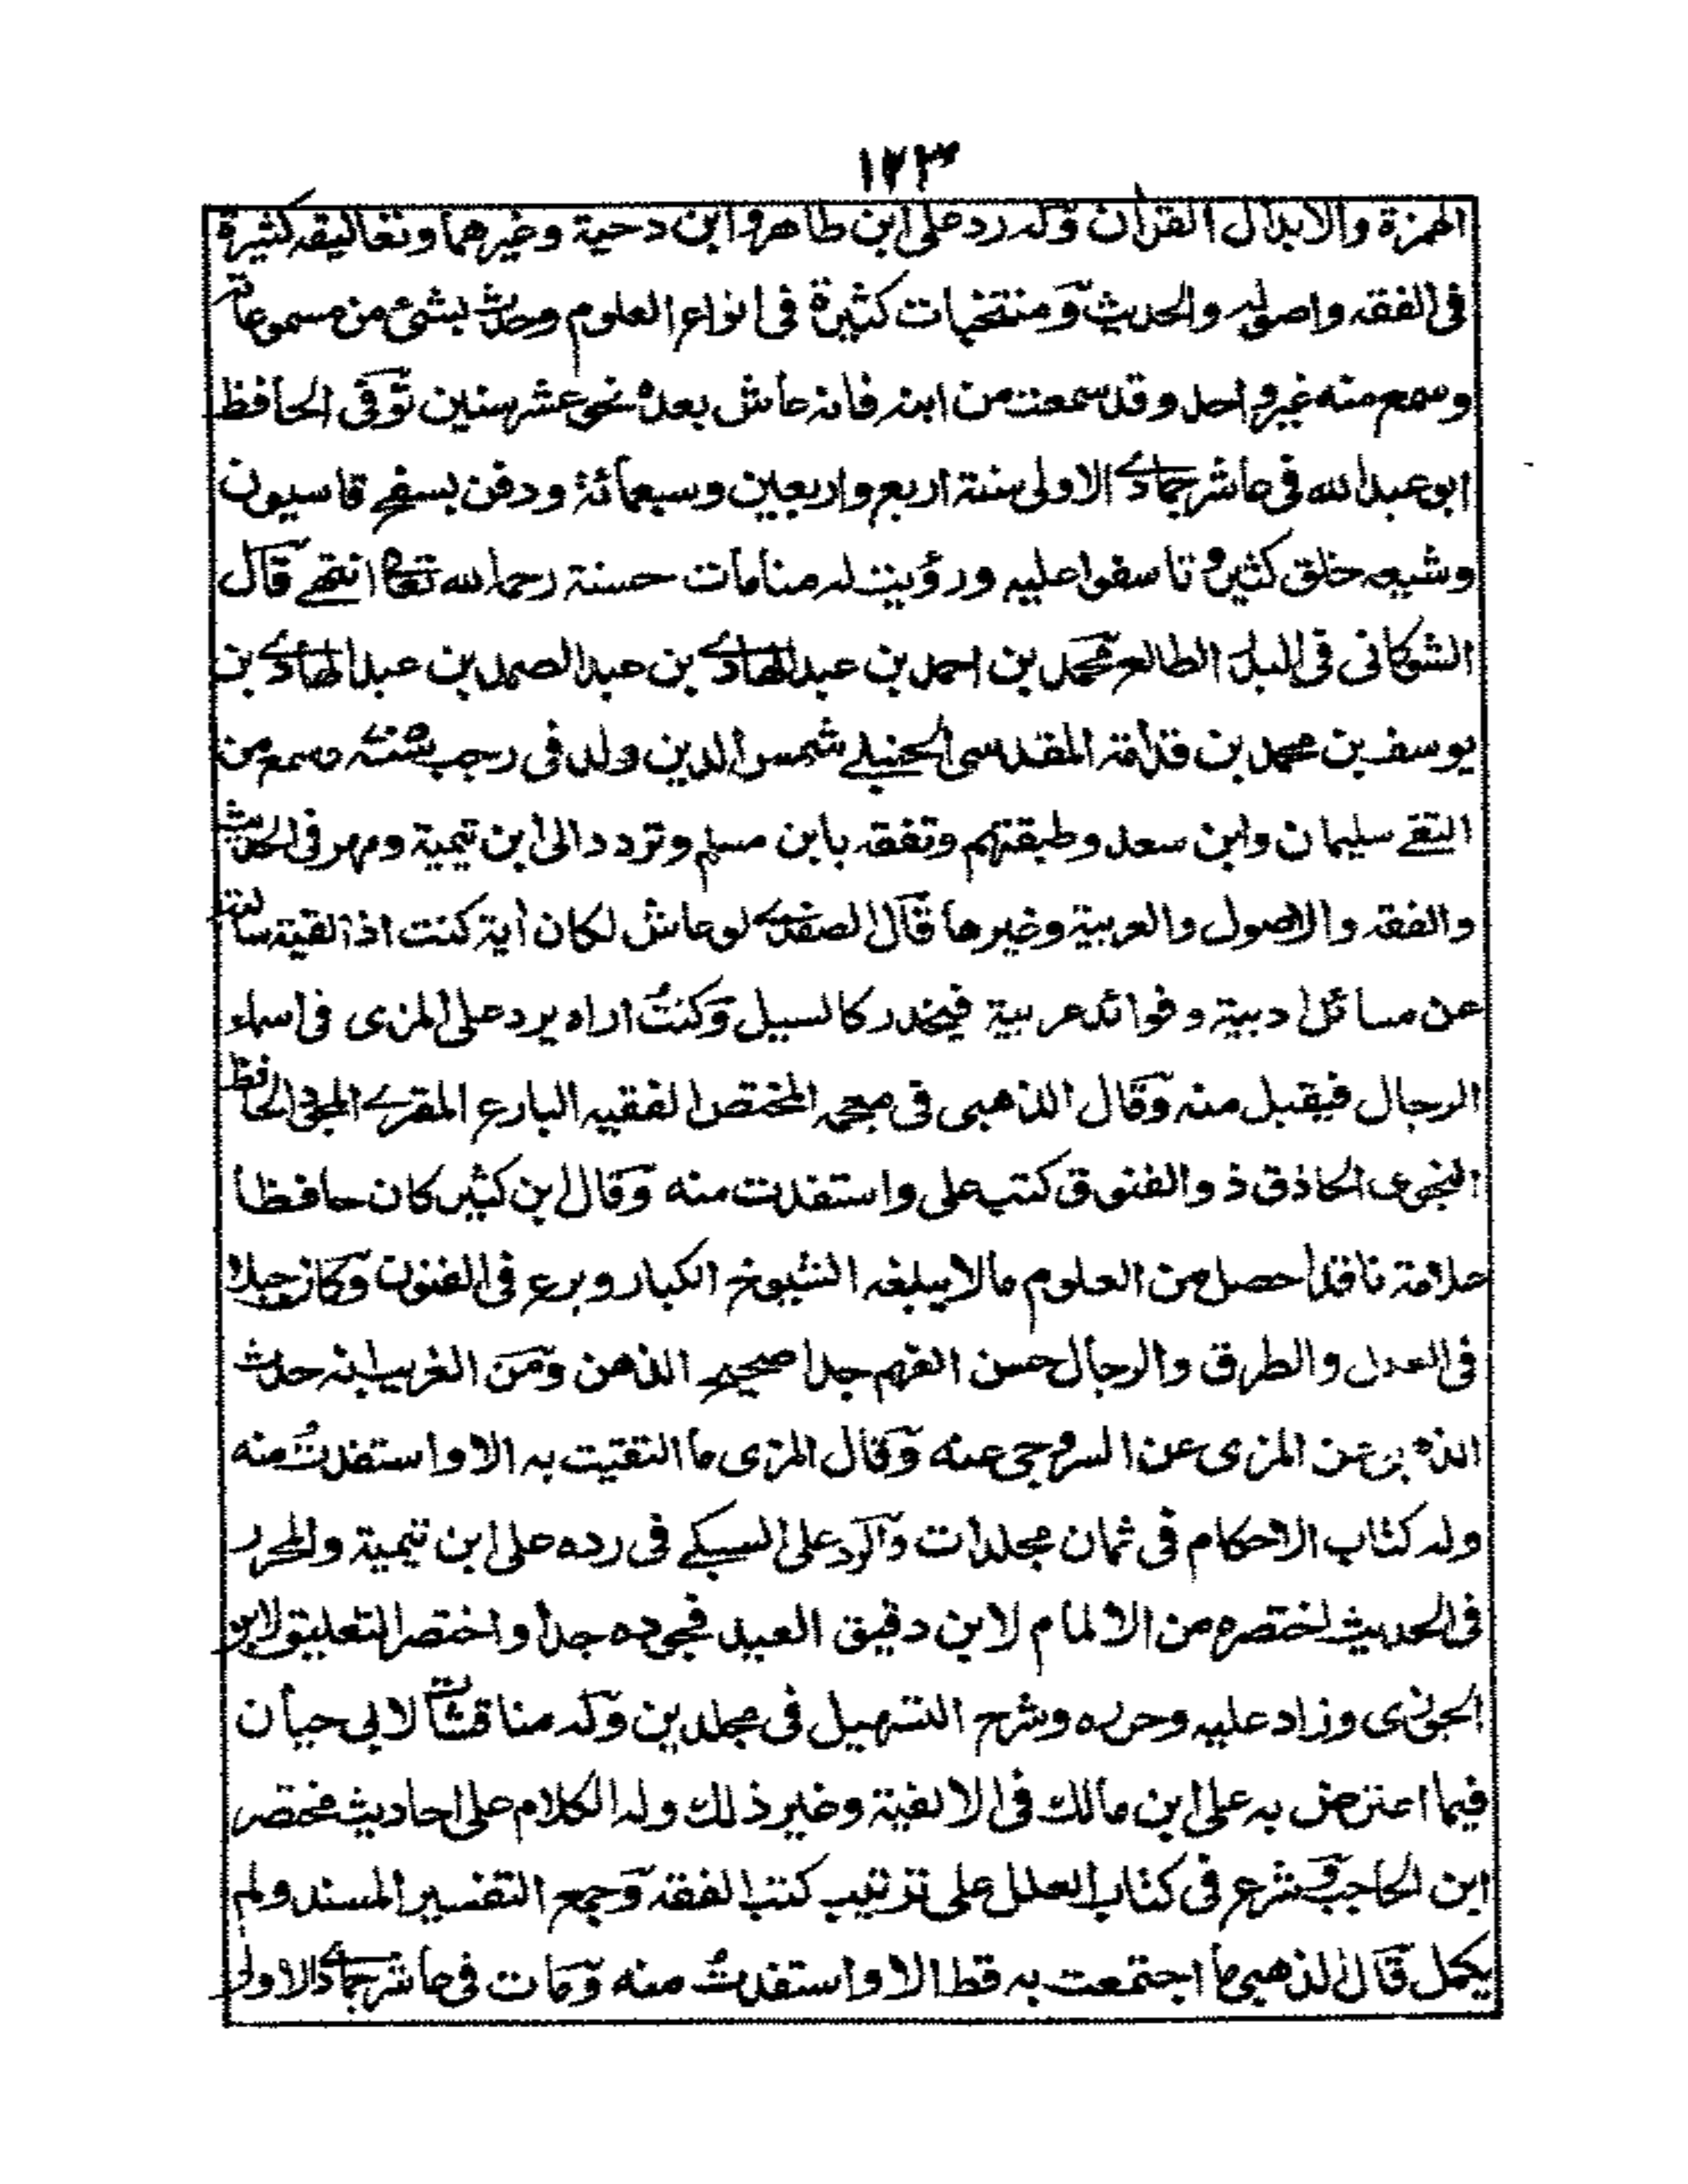 ١٢٣
الهمزة والابدال القرآن وله رد على ابن طاهر وابن دحية وغيرهما وتعاليقه كثيرة
فى الفقه واصوله والحديث ومنتخبات كثيرة فى انواع العلوم وحدث بشئ من مسموعاته
وسمع منه غير واحد وقد سمعت من ابنه فانه عاش بعده نحو عشر سنين توفى الحافظ
ابو عبد الله فى عاشر جمادى الاولى سنة اربع واربعين وسبعمائة ودفن بسفح قاسيون
وشيعه خلق كثير وتاسفوا عليه ورؤيت له منامات حسنة رحمه الله تعالى انتهى قال
الشوكانى فى البدر الطالع محمد بن احمد بن عبد الهادى بن عبد الصمد بن عبد الهادى بن
يوسف بن محمد بن قدامة المقدسى الحنبلى شمس الدين ولد فى رجب سنة وسمع من
التقى سليمان وابن سعد وطبقتهم وتفقه بابن مسلم وتردد الى ابن تيمية ومهر فى الحديث
والفقه والاصول والعربية وغيرها قال الصفدى لو عاش لكان أية كنت اذا لقيته سالته
عن مسائل ادبية وفوائد عربية فينحدر كالسيل وكنتُ اراه يرد على المزى فى اسماء
الرجال فيقبل منه وقال الذهبى فى معجمه المختص الفقيه البارع المقرى المجود الحافظ
النحوى الحاذق ذو الفنون كتب على واستفدت منه وقال ابن كثير كان حافظا
علامة ناقدا حصل من العلوم مالا يبلغه الشيوخ الكبار وبرع فى الفنون وكان جبلا
فى العلل والطرق والرجال حسن الفهم جدا صحيح الذهن ومن الغريب انه حدث
الذهبى عن المزى عن السروجى عنه وقال المزى ما التقيت به الا واستفدتُ منه
وله كتاب الاحكام فى ثمان مجلدات والرد على السبكى فى رده على ابن تيمية والمحرر
فى الحديث اختصره من الالمام لابن دقيق العيد فجوده جدا واختصر التعليق لابن
الجوزى وزاد عليه وحرره وشرح التسهيل فى مجلدين وله مناقشات لابى حيان
فيما اعترض به على ابن مالك فى الالفية وغير ذلك وله الكلام على احاديث مختصر
ابن الحاجب وشرع فى كتاب العلل على ترتيب كتب الفقه وجمع التفسير المسند ولم
يكمل قال الذهبى ما اجتمعت به قط الا واستفدتُ منه ومات فى عاشر جمادى الاولى